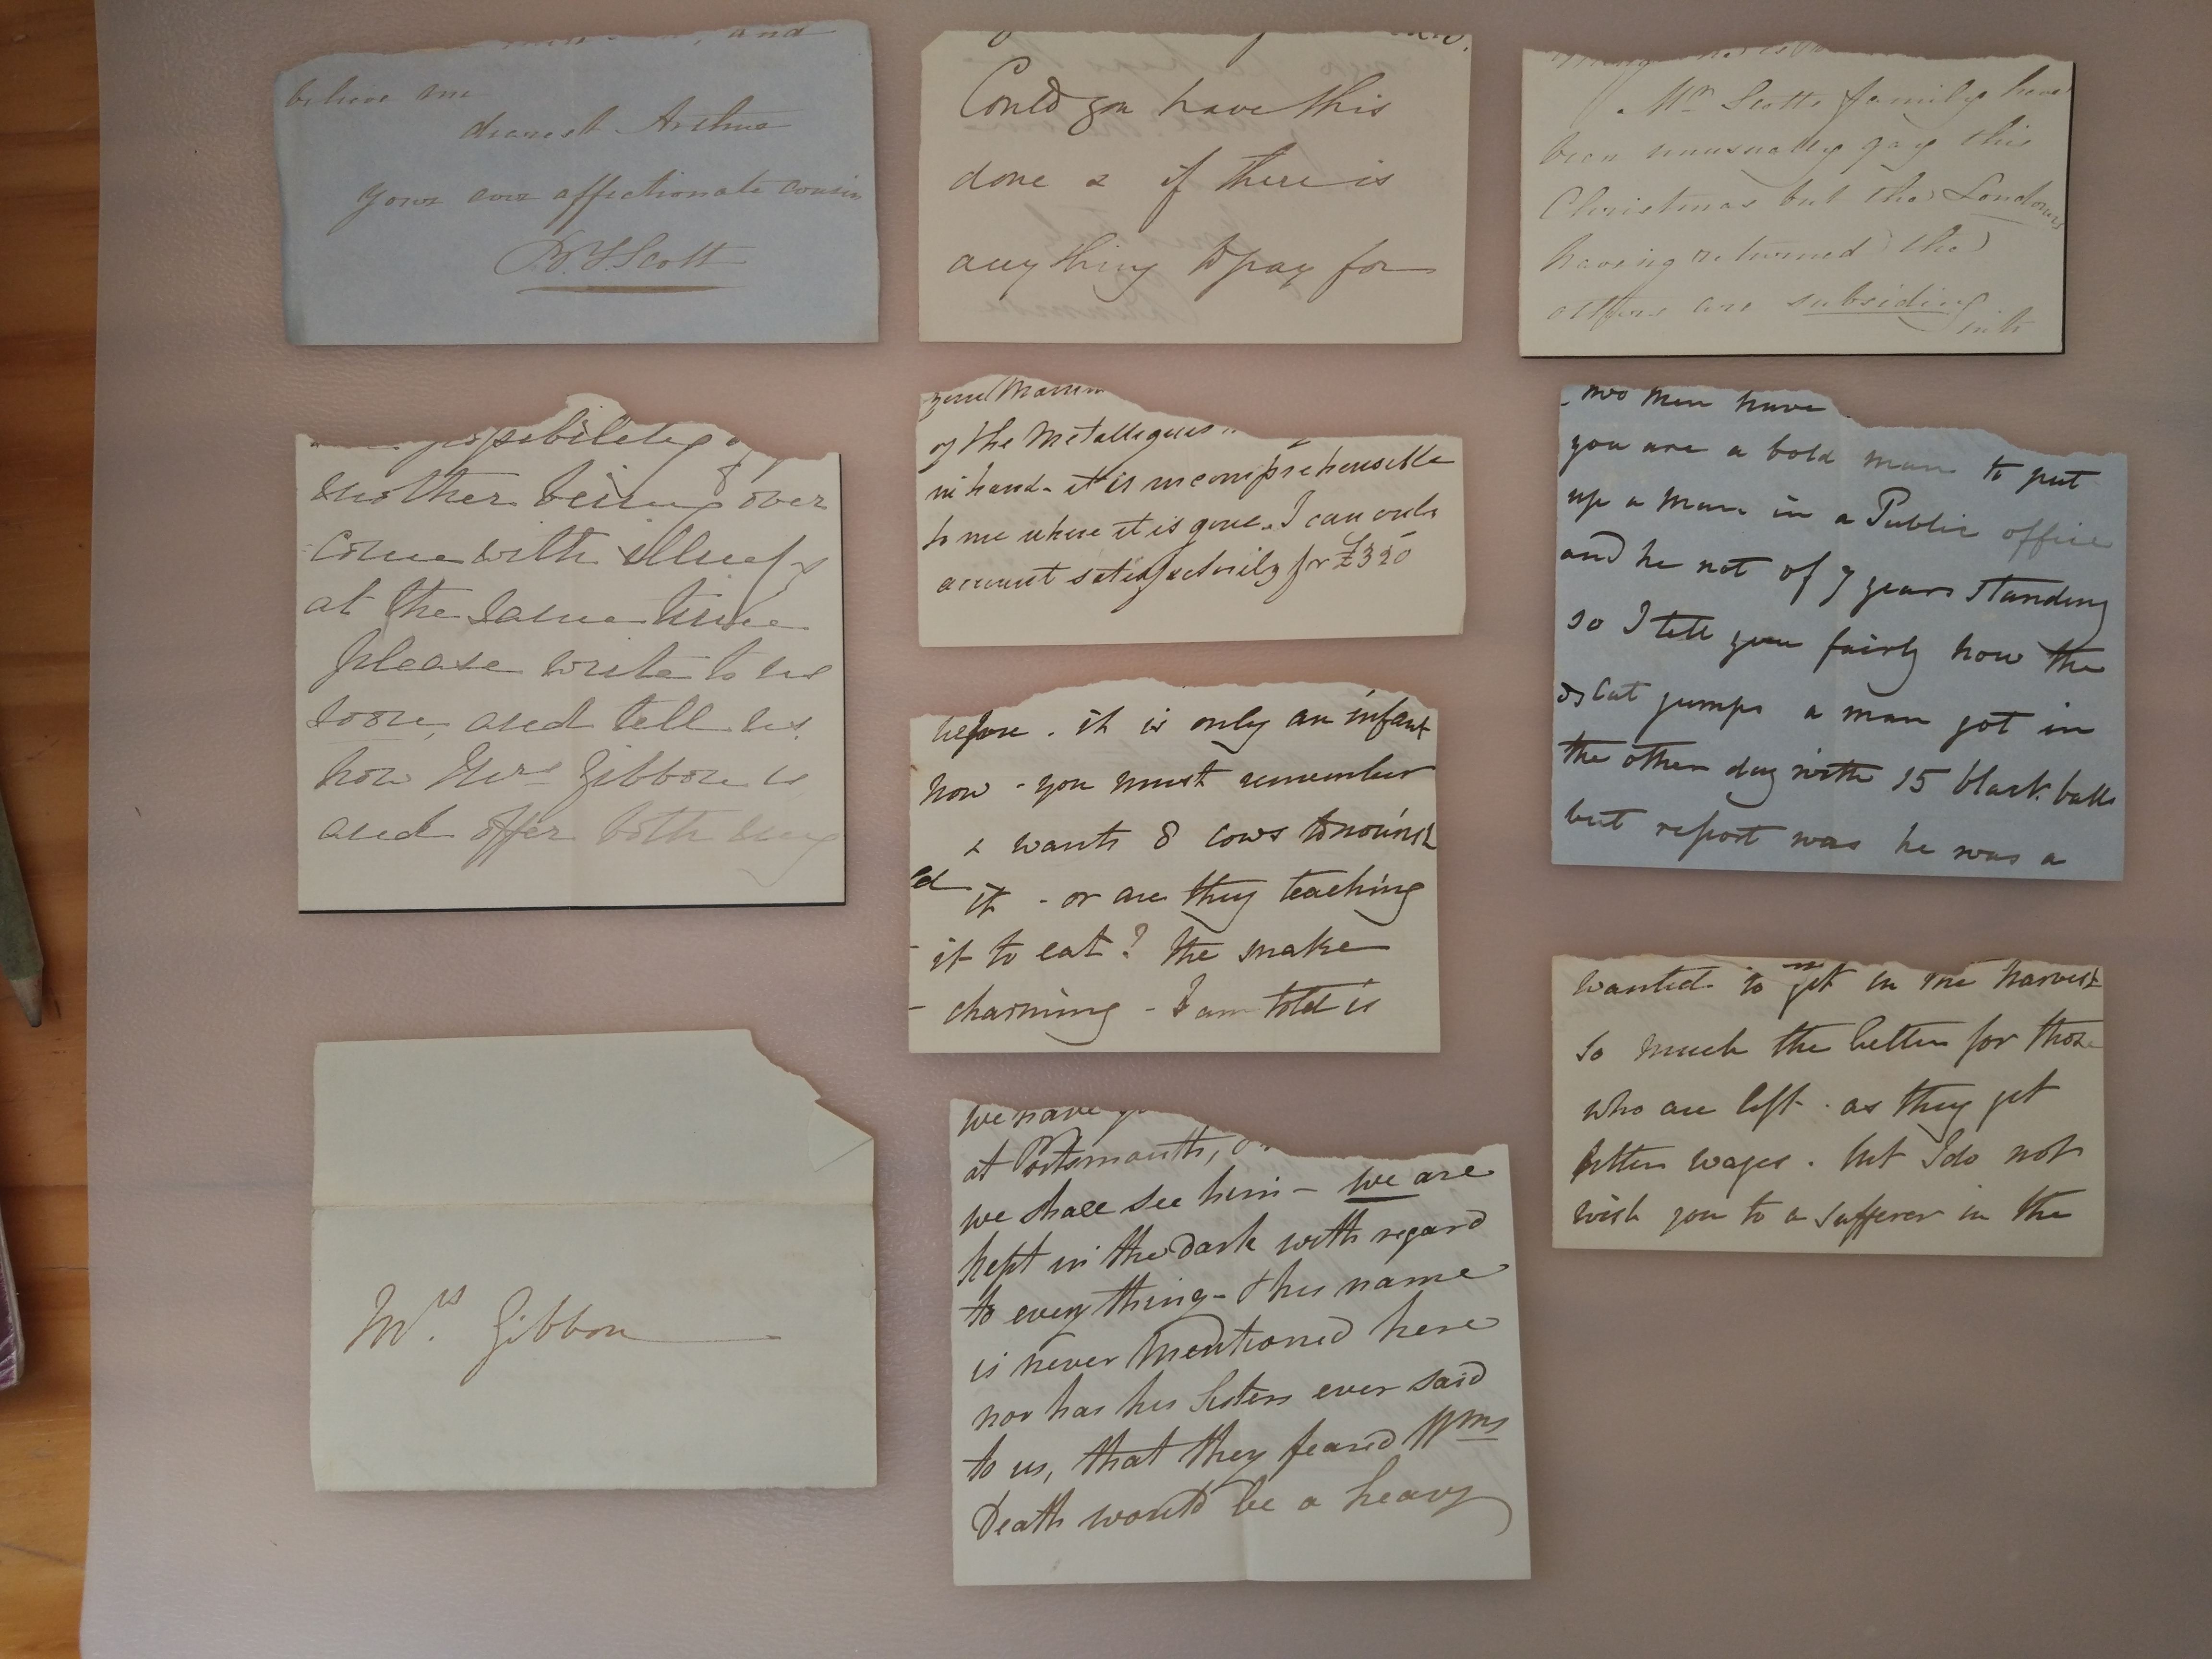 and
believe me
dearest Arthur
your ever affectionate cousin
Scott
Could you have this
done & if there is
anything to pay for
Mr Scotts family have
been unusually gay this
Christmas but the Londoners
having returned the
others are subsiding
into
possibility
mother being over
come with illness
at the same time
please write to us
soon, and tell us
how Mrs Gibbon is
and offer both
your
of the Metalliques
in hand - it is incomprehensible
to me where it is gone. I can only
account satisfactorily for £350
two men have
you are a bold man to put
up a man in a Public office
and he not of 7 years standing
so I tell you fairly how the
cat jumps a man got in
the other day with 15 black balls
but report was he was a
before . it is only an infant
now - you must remember
& wants 8 cows to nourish
it - or are they teaching
it to eat? the snake
charming - I am told is
wanted to get in the harvest
so much the better for those
who are left . as they get
better wages . but I do not
wish you to a sufferer in the
Mrs. Gibbon
we have
at Portsmouth,
we shall see him - we are
kept in the dark with regard
to every thing - & his name
is never mentioned here
nor has his Sisters ever said
to us, that they feared Wms
Death would be a heavy